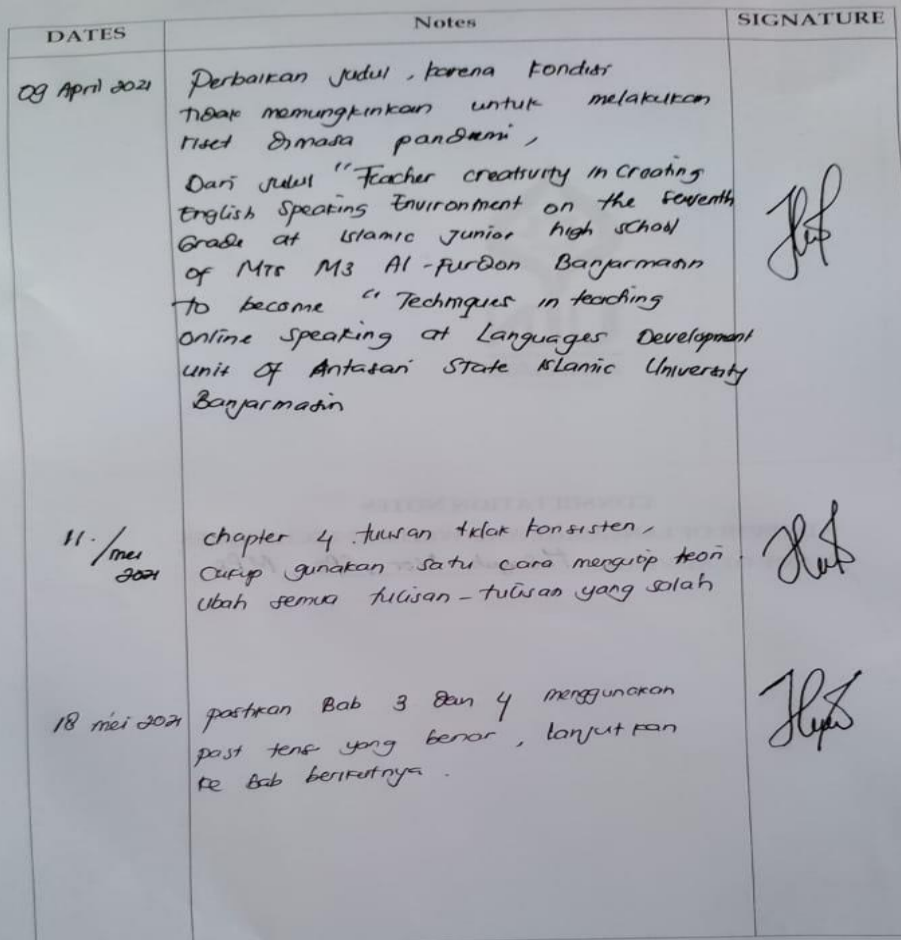 DATES Notes SIGNATURE
09 April 2021 Perbaikan judul, karena kondisi
tidak memungkinkan untuk melakukan
riset dimasa pandemi,
Dari judul "Teacher creativity in Creating
English Speaking Environment on the Seventh
Grade at Islamic Junior high school
of MTs M3 Al-Furqon Banjarmasin
to become "Techniques in teaching
online speaking at Languages Development
unit Of Antasari State Islamic University
Banjarmasin
11./mei 2021 chapter 4 tulisan tidak konsisten,
cukup gunakan satu cara mengutip teori.
Ubah semua tulisan-tulisan yang salah
18 mei 2021 pastikan Bab 3 dan 4 menggunakan
past tens yang benar, lanjutkan
ke Bab berikutnya.